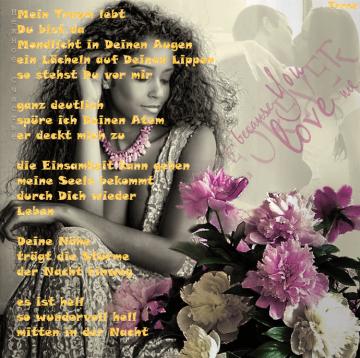 Mein Traum lebt
Du bist da
Mondlicht in Deinen Augen
ein Lächeln auf Deinen Lippen
so stehst Du vor mir
ganz deutlich
spüre ich Deinen Atem
er deckt mich zu
die Einsamkeit kann gehen
meine Seele bekommt
durch Dich wieder
Leben
Deine Nähe
trägt die Stürme
der Nacht hinweg
es ist hell
so wundervoll hell
mitten in der Nacht
because
You
love
me